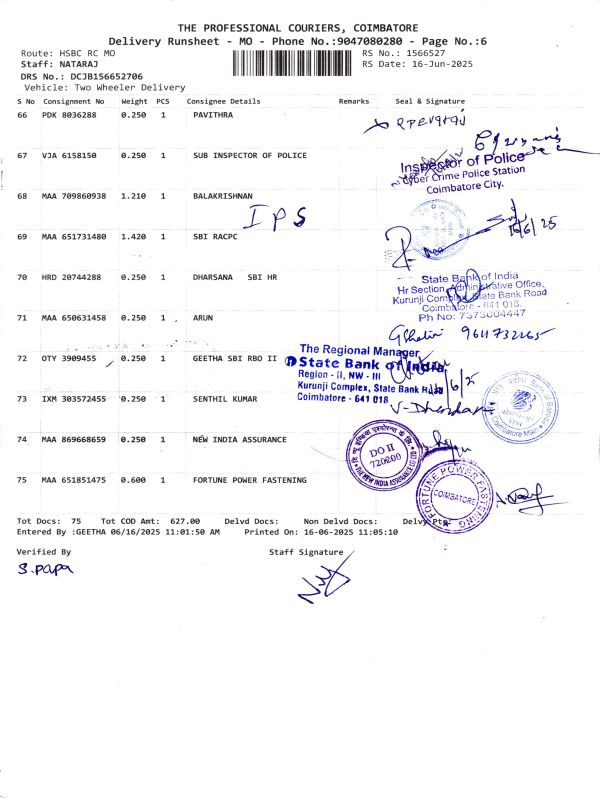 THE PROFESSIONAL COURIERS, COIMBATORE
Delivery Runsheet - MO - Phone No.:9047080280 - Page No.:6
Route: HSBC RC MO
RS No.: 1566527
Staff: NATARAJ
RS Date: 16-Jun-2025
DRS No.: DCJB156652706
Vehicle: Two Wheeler Delivery
S No Consignment No Weight PCS Consignee Details Remarks Seal & Signature
66 PDK 8036288 0.250 1 PAVITHRA
67 VJA 6158150 0.250 1 SUB INSPECTOR OF POLICE
Inspector of Police
Cyber Crime Police Station
Coimbatore City.
68 MAA 709860938 1.210 1 BALAKRISHNAN
IPS
16/6/25
69 MAA 651731480 1.420 1 SBI RACPC
70 HRD 20744288 0.250 1 DHARSANA SBI HR
State Bank of India
Hr Section, Administrative Office,
Kurunji Complex, State Bank Road
Coimbatore - 641 018.
Ph No: 7373004447
71 MAA 650631458 1 ARUN
0.250
9611732265
72 OTY 3909455 0.250 1 GEETHA SBI RBO II
The Regional Manager
State Bank of India,
Region - II, NW - III
Kurunji Complex, State Bank Road
Coimbatore - 641 018
73 IXM 303572455 0.250 1 SENTHIL KUMAR
74 MAA 869668659 0.250 1 NEW INDIA ASSURANCE
DO II
720200
THE NEW INDIA ASSURANCE CO LTD
75 MAA 651851475 0.600 1 FORTUNE POWER FASTENING
FORTUNE POWER FASTENING
COIMBATORE
Tot Docs: 75 Tot COD Amt: 627.00 Delvd Docs: Non Delvd Docs: Delvy Pts:
Entered By :GEETHA 06/16/2025 11:01:50 AM Printed On: 16-06-2025 11:05:10
Verified By Staff Signature
S. papa